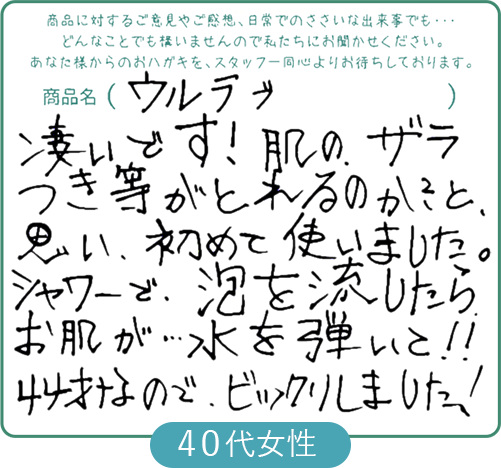 商品に対するご意見やご感想、日常でのささいな出来事でも・・・
どんなことでも構いませんので私たちにお聞かせください。
あなた様からのおハガキを、スタッフ一同心よりお待ちしております。
商品名 ( ウルラッ )
凄いです!肌の、ザラ
つき等がとれるのか?と、
思い、初めて使いました。
シャワーで、泡を流したら
お肌が…水を弾いと!!
44才なので、ビックリしました!
40代女性